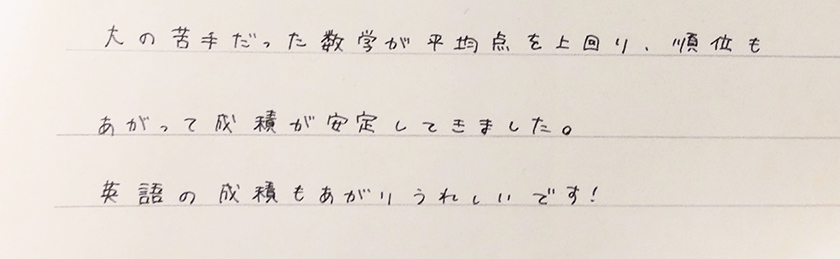 大の苦手だった数学が平均点を上回り、順位も
あがって成積が安定してきました。
英語の成積もあがりうれしいです!